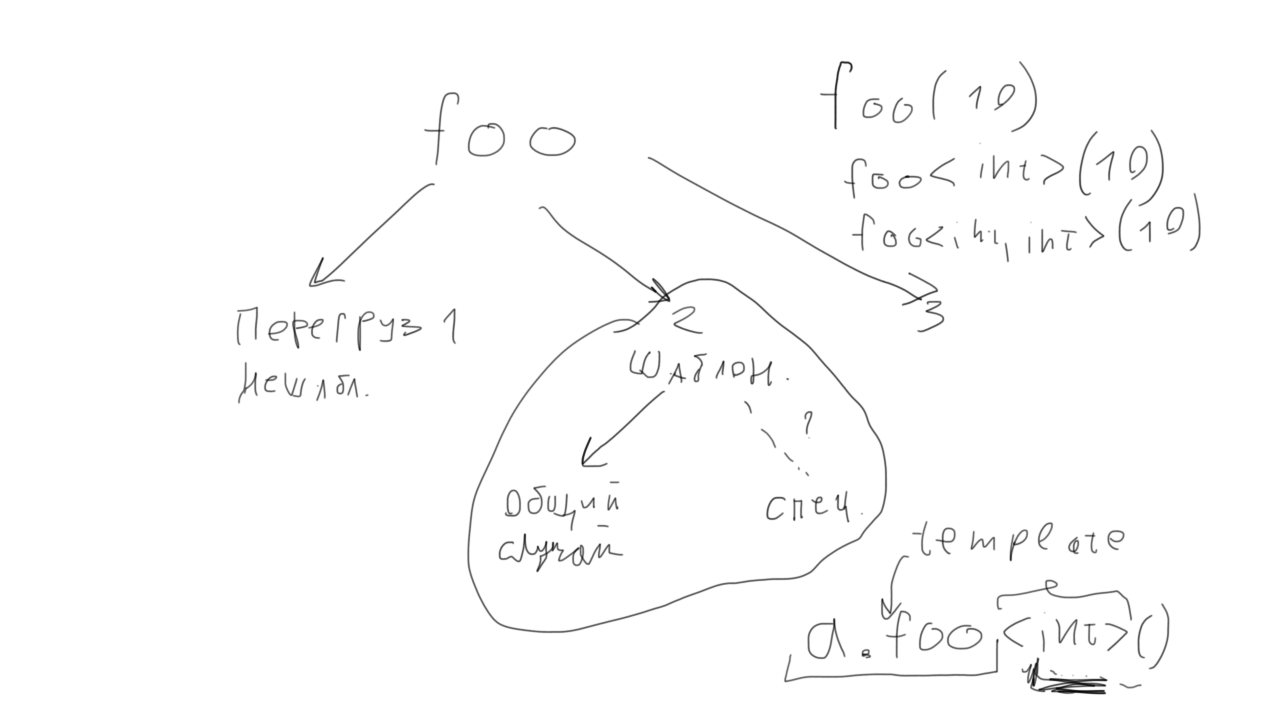 foo
foo(10)
foo<int>(10)
foo<int, int>(10)
Перегруз 1
нешабл.
2
шаблон.
3
?
Общий
случай
спец.
template
a.foo<int>()